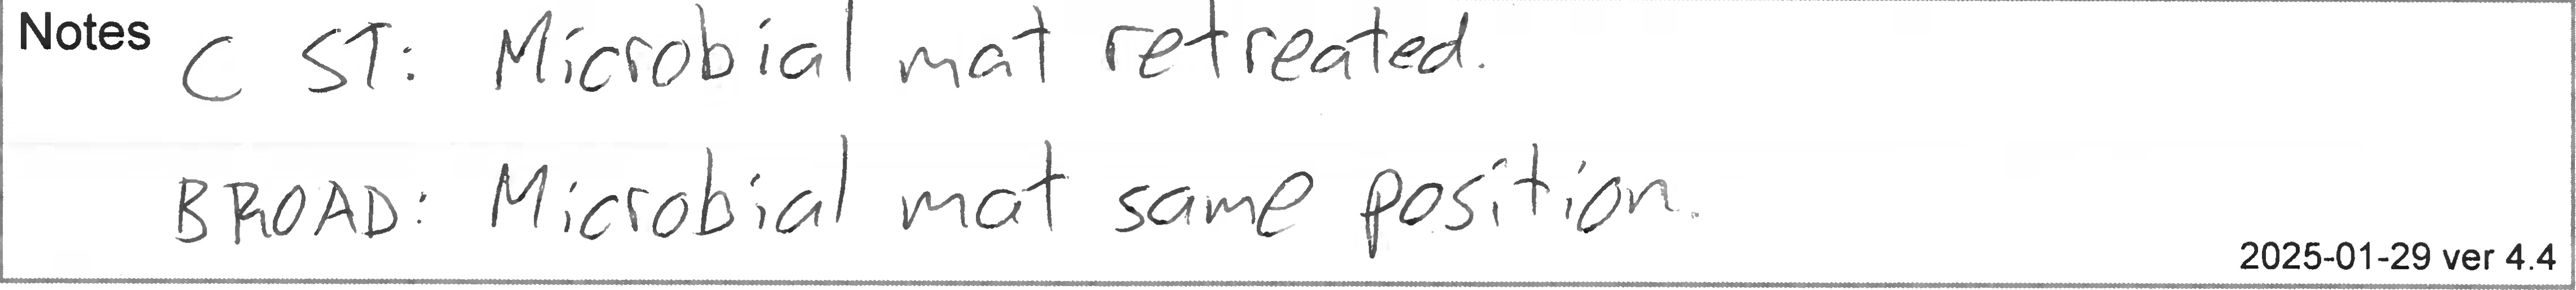 Notes C ST: Microbial mat retreated.
BROAD: Microbial mat same position.
2025-01-29 ver 4.4